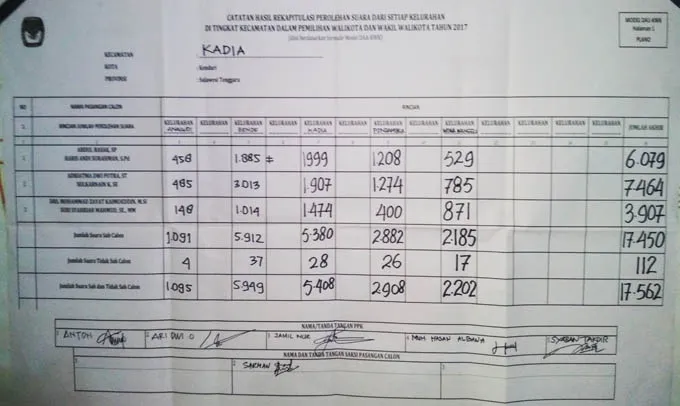 CATATAN HASIL REKAPITULASI PEROLEHAN SUARA DARI SETIAP KELURAHAN
DI TINGKAT KECAMATAN DALAM PEMILIHAN WALIKOTA DAN WAKIL WALIKOTA TAHUN 2017
MODEL DA1-KWK
Halaman 1
PLANO
KECAMATAN KADIA
KOTA : Kendari
PROVINSI : Sulawesi Tenggara
NO NAMA PASANGAN CALON RINCIAN
RINCIAN JUMLAH PEROLEHAN SUARA KELURAHAN KELURAHAN KELURAHAN KELURAHAN KELURAHAN KELURAHAN KELURAHAN KELURAHAN KELURAHAN KELURAHAN KELURAHAN KELURAHAN KELURAHAN JUMLAH AKHIR
BENDE KADIA PONDAMBEA
ABDUL RASAK, SP
HARIS ANDI SURAHMAN, S.Pd
458 1.885 1999 1.208 529 6.079
ADRIATMA DWI PUTRA, ST
SULKARNAIN K, SE
485 3.013 1.907 1.274 785 7.464
DRS. MOHAMMAD ZAYAT KAIMOEDDIN, M.SI
SURI SYAHRIAH MAHMUD, SE., MM
148 1.014 1.474 400 871 3.907
Jumlah Suara Sah Calon 1.091 5.912 5.380 2.882 2.185 17.450
Jumlah Suara Tidak Sah Calon 4 37 28 26 17 112
Jumlah Suara Sah dan Tidak Sah Calon 1.095 5.949 5.408 2.908 2.202 17.562
NAMA/TANDA TANGAN PPK
1. ANTON 2. ARI DWI O 3. JAMIL NUR 4. MUH HASAN ALBANA 5. SYABAN TAKDIR
NAMA DAN TANDA TANGAN SAKSI PASANGAN CALON
SARMAN